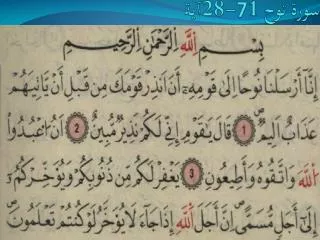 سورة نوح 71-28آية
بِسْمِ اللَّهِ الرَّحْمَٰنِ الرَّحِيمِ
إِنَّا أَرْسَلْنَا نُوحًا إِلَىٰ قَوْمِهِ أَنْ أَنذِرْ قَوْمَكَ مِن قَبْلِ أَنْ يَأْتِيَهُمْ
عَذَابٌ أَلِيمٌ 1 قَالَ يَا قَوْمِ إِنِّي لَكُمْ نَذِيرٌ مُبِينٌ 2 أَنِ اعْبُدُوا
اللَّهَ وَاتَّقُوهُ وَأَطِيعُونِ 3 يَغْفِرْ لَكُم مِن ذُنُوبِكُمْ وَيُؤَخِّرْكُمْ
إِلَىٰ أَجَلٍ مُسَمًّى إِنَّ أَجَلَ اللَّهِ إِذَا جَاءَ لَا يُؤَخَّرُ لَوْ كُنتُمْ تَعْلَمُونَ